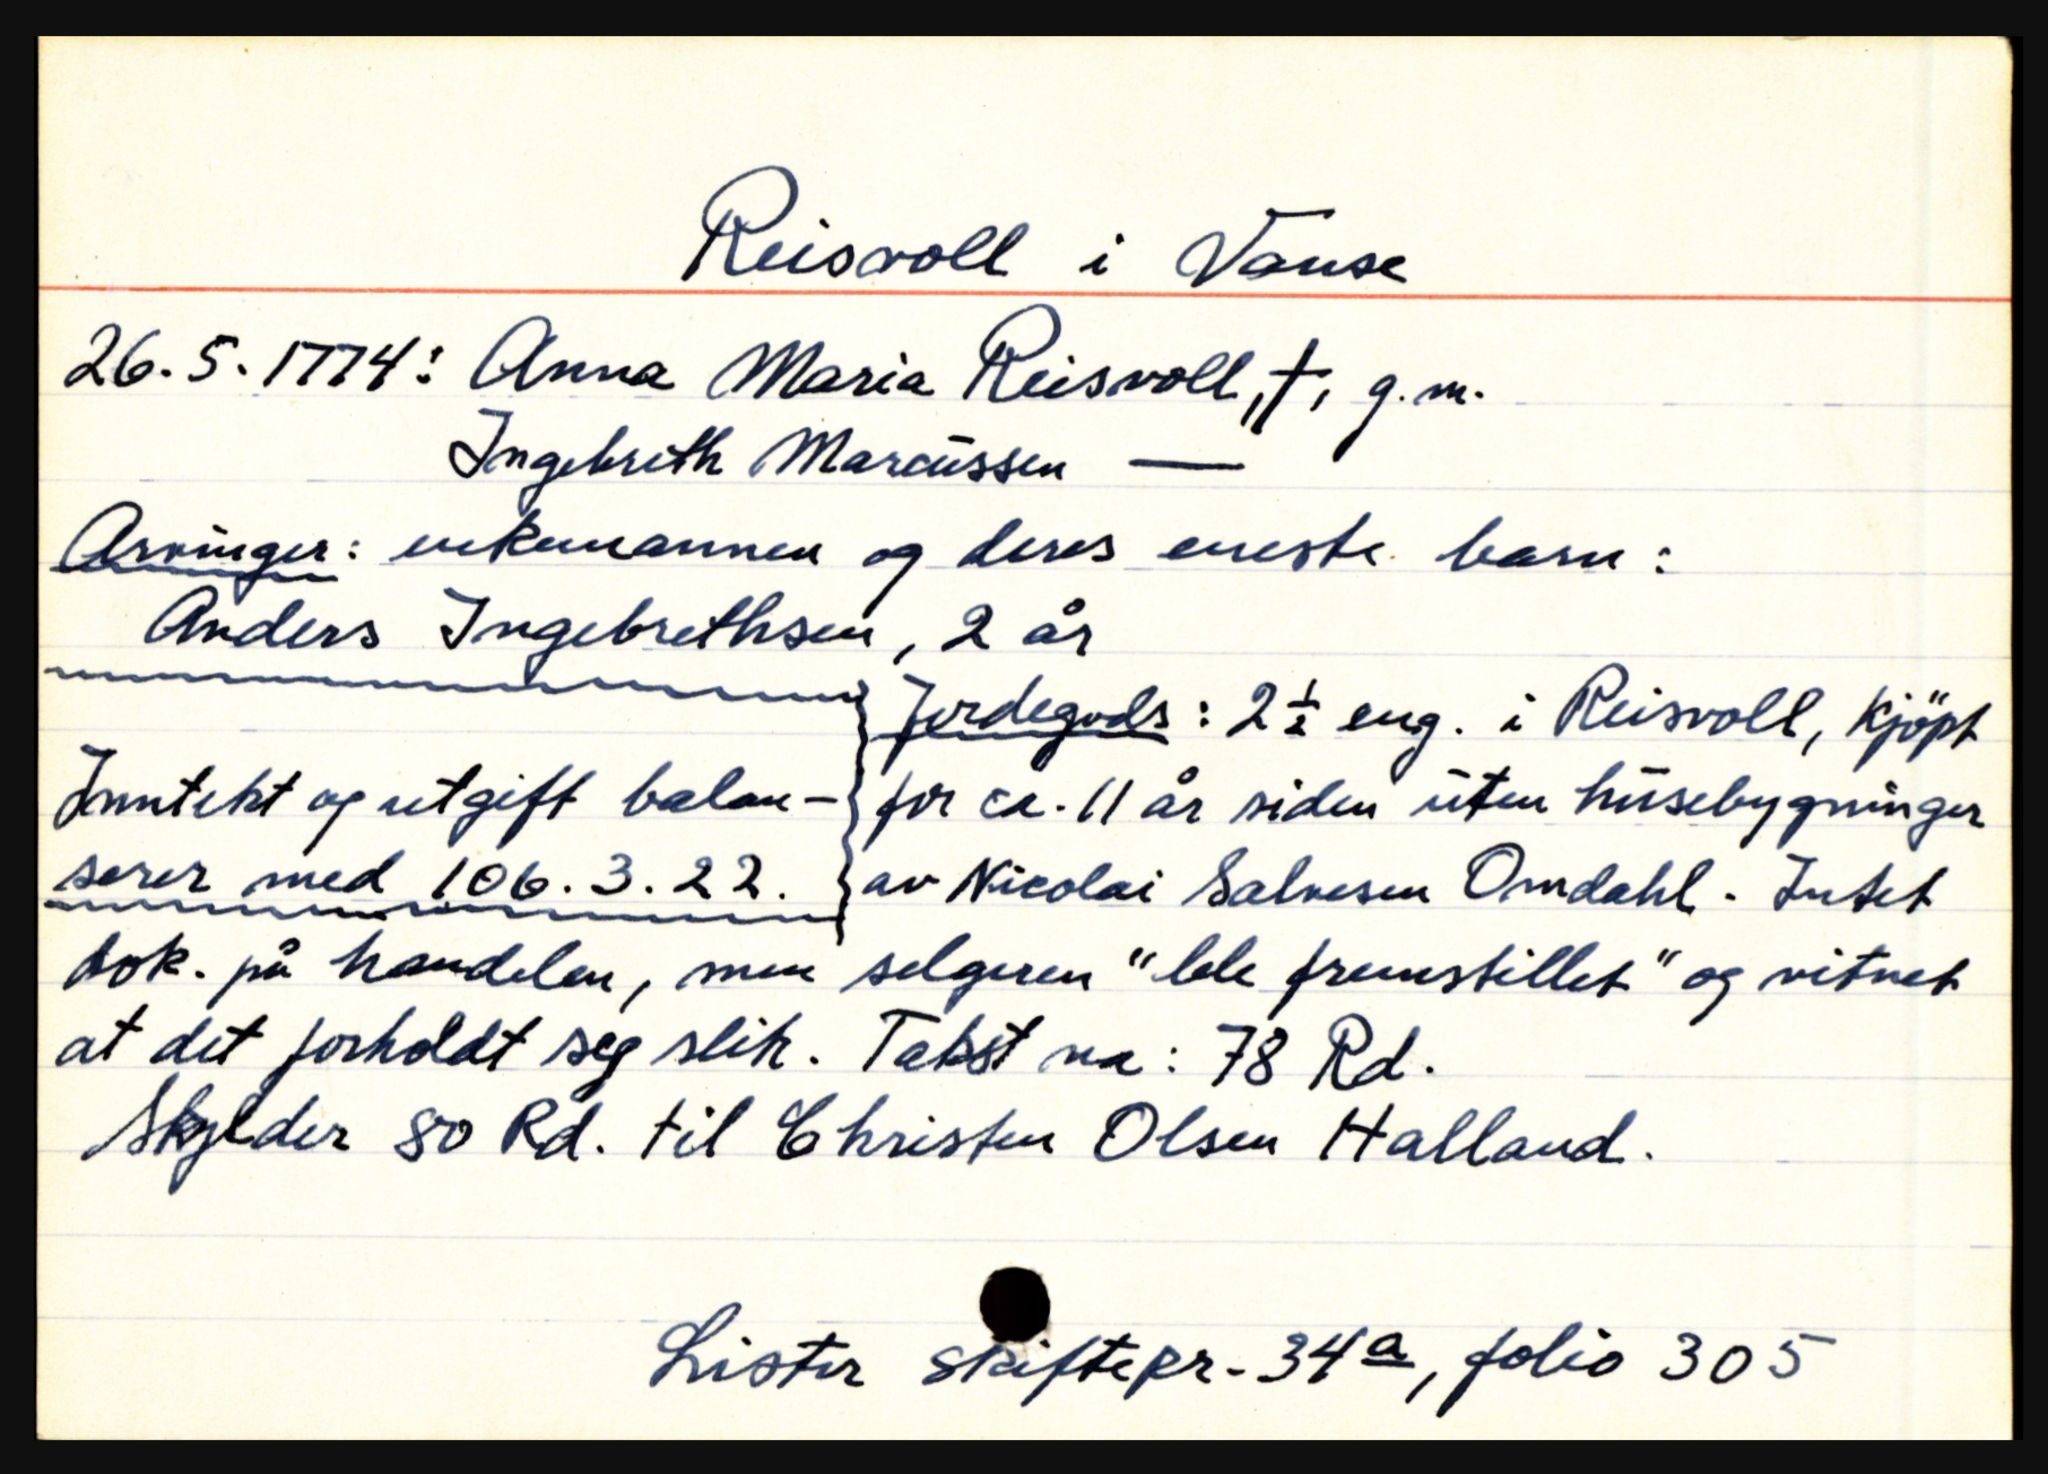 Reisvoll i Vanse
26.5.1774: Anna Maria Reisvoll, †, g.m.
Ingebreth Marcüssen —"—
Arvinger: enkemannen og deres eneste barn:
Anders Ingebrethsen, 2 år
Inntekt og utgift balan-
serer med 106.3.22.
Jordegods: 2 ½ eng. i Reisvoll, kjöpt
for ca. 11 år siden üten hüsebygninger
av Nicolai Salvesen Omdahl. Intet
dok. på handelen, men selgeren "lele fremstillet" og vitnet
at det forholdt seg slik. Takst na: 78 Rd.
Skylder 80 Rd. til Christen Olsen Halland.
Lister skiftepr. 34a, folio 305